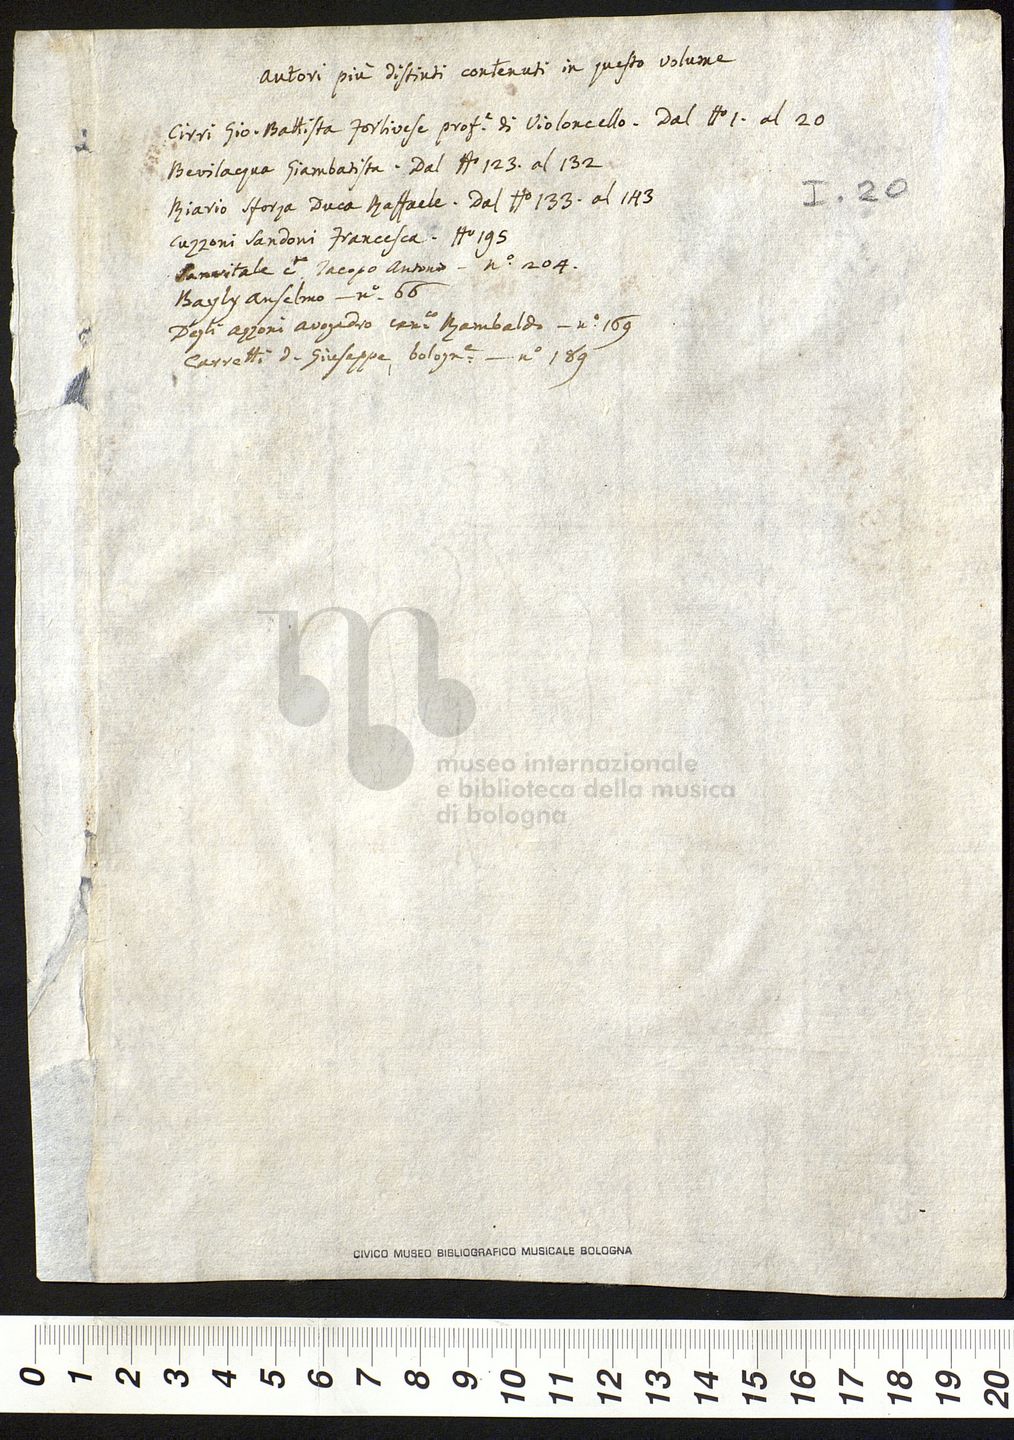 Autori più distinti contenuti in questo volume
Cirri Gio. Battista Forlivese prof.e di Violoncello. Dal No 1. al 20
Bevilacqua Giambatista. Dal No 123. al 132
I. 20
Riario Sforza Duca Raffaele. Dal No 133. al 143
Cuzzoni Sandoni Francesca. No 195
Sanvitale c.te Jacopo Antonio – n.o 204.
Bayly Anselmo — n.o 66
Degli Azzoni Avogadro can.co Rambaldo — n.o 169
Carretti d. Giuseppe, bologn.e — n.o 189
museo internazionale
e biblioteca della musica
di bologna
CIVICO MUSEO BIBLIOGRAFICO MUSICALE BOLOGNA
0 1 2 3 4 5 6 7 8 9 10 11 12 13 14 15 16 17 18 19 20